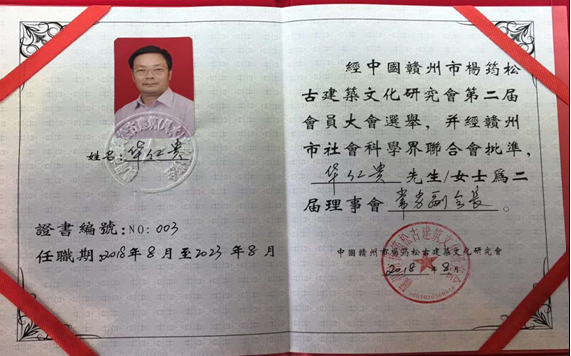 姓名:华仁贵
證書編號:NO:003
任職期:2018年8月至2023年8月
經中國贛州市楊筠松
古建築文化研究會第二屆
會員大會選舉，并經贛州
市社會科學界聯合會批准，
华仁贵 先生/女士為二
屆理事會 常务副会長。
中國贛州市楊筠松古建築文化研究會
2018年8月